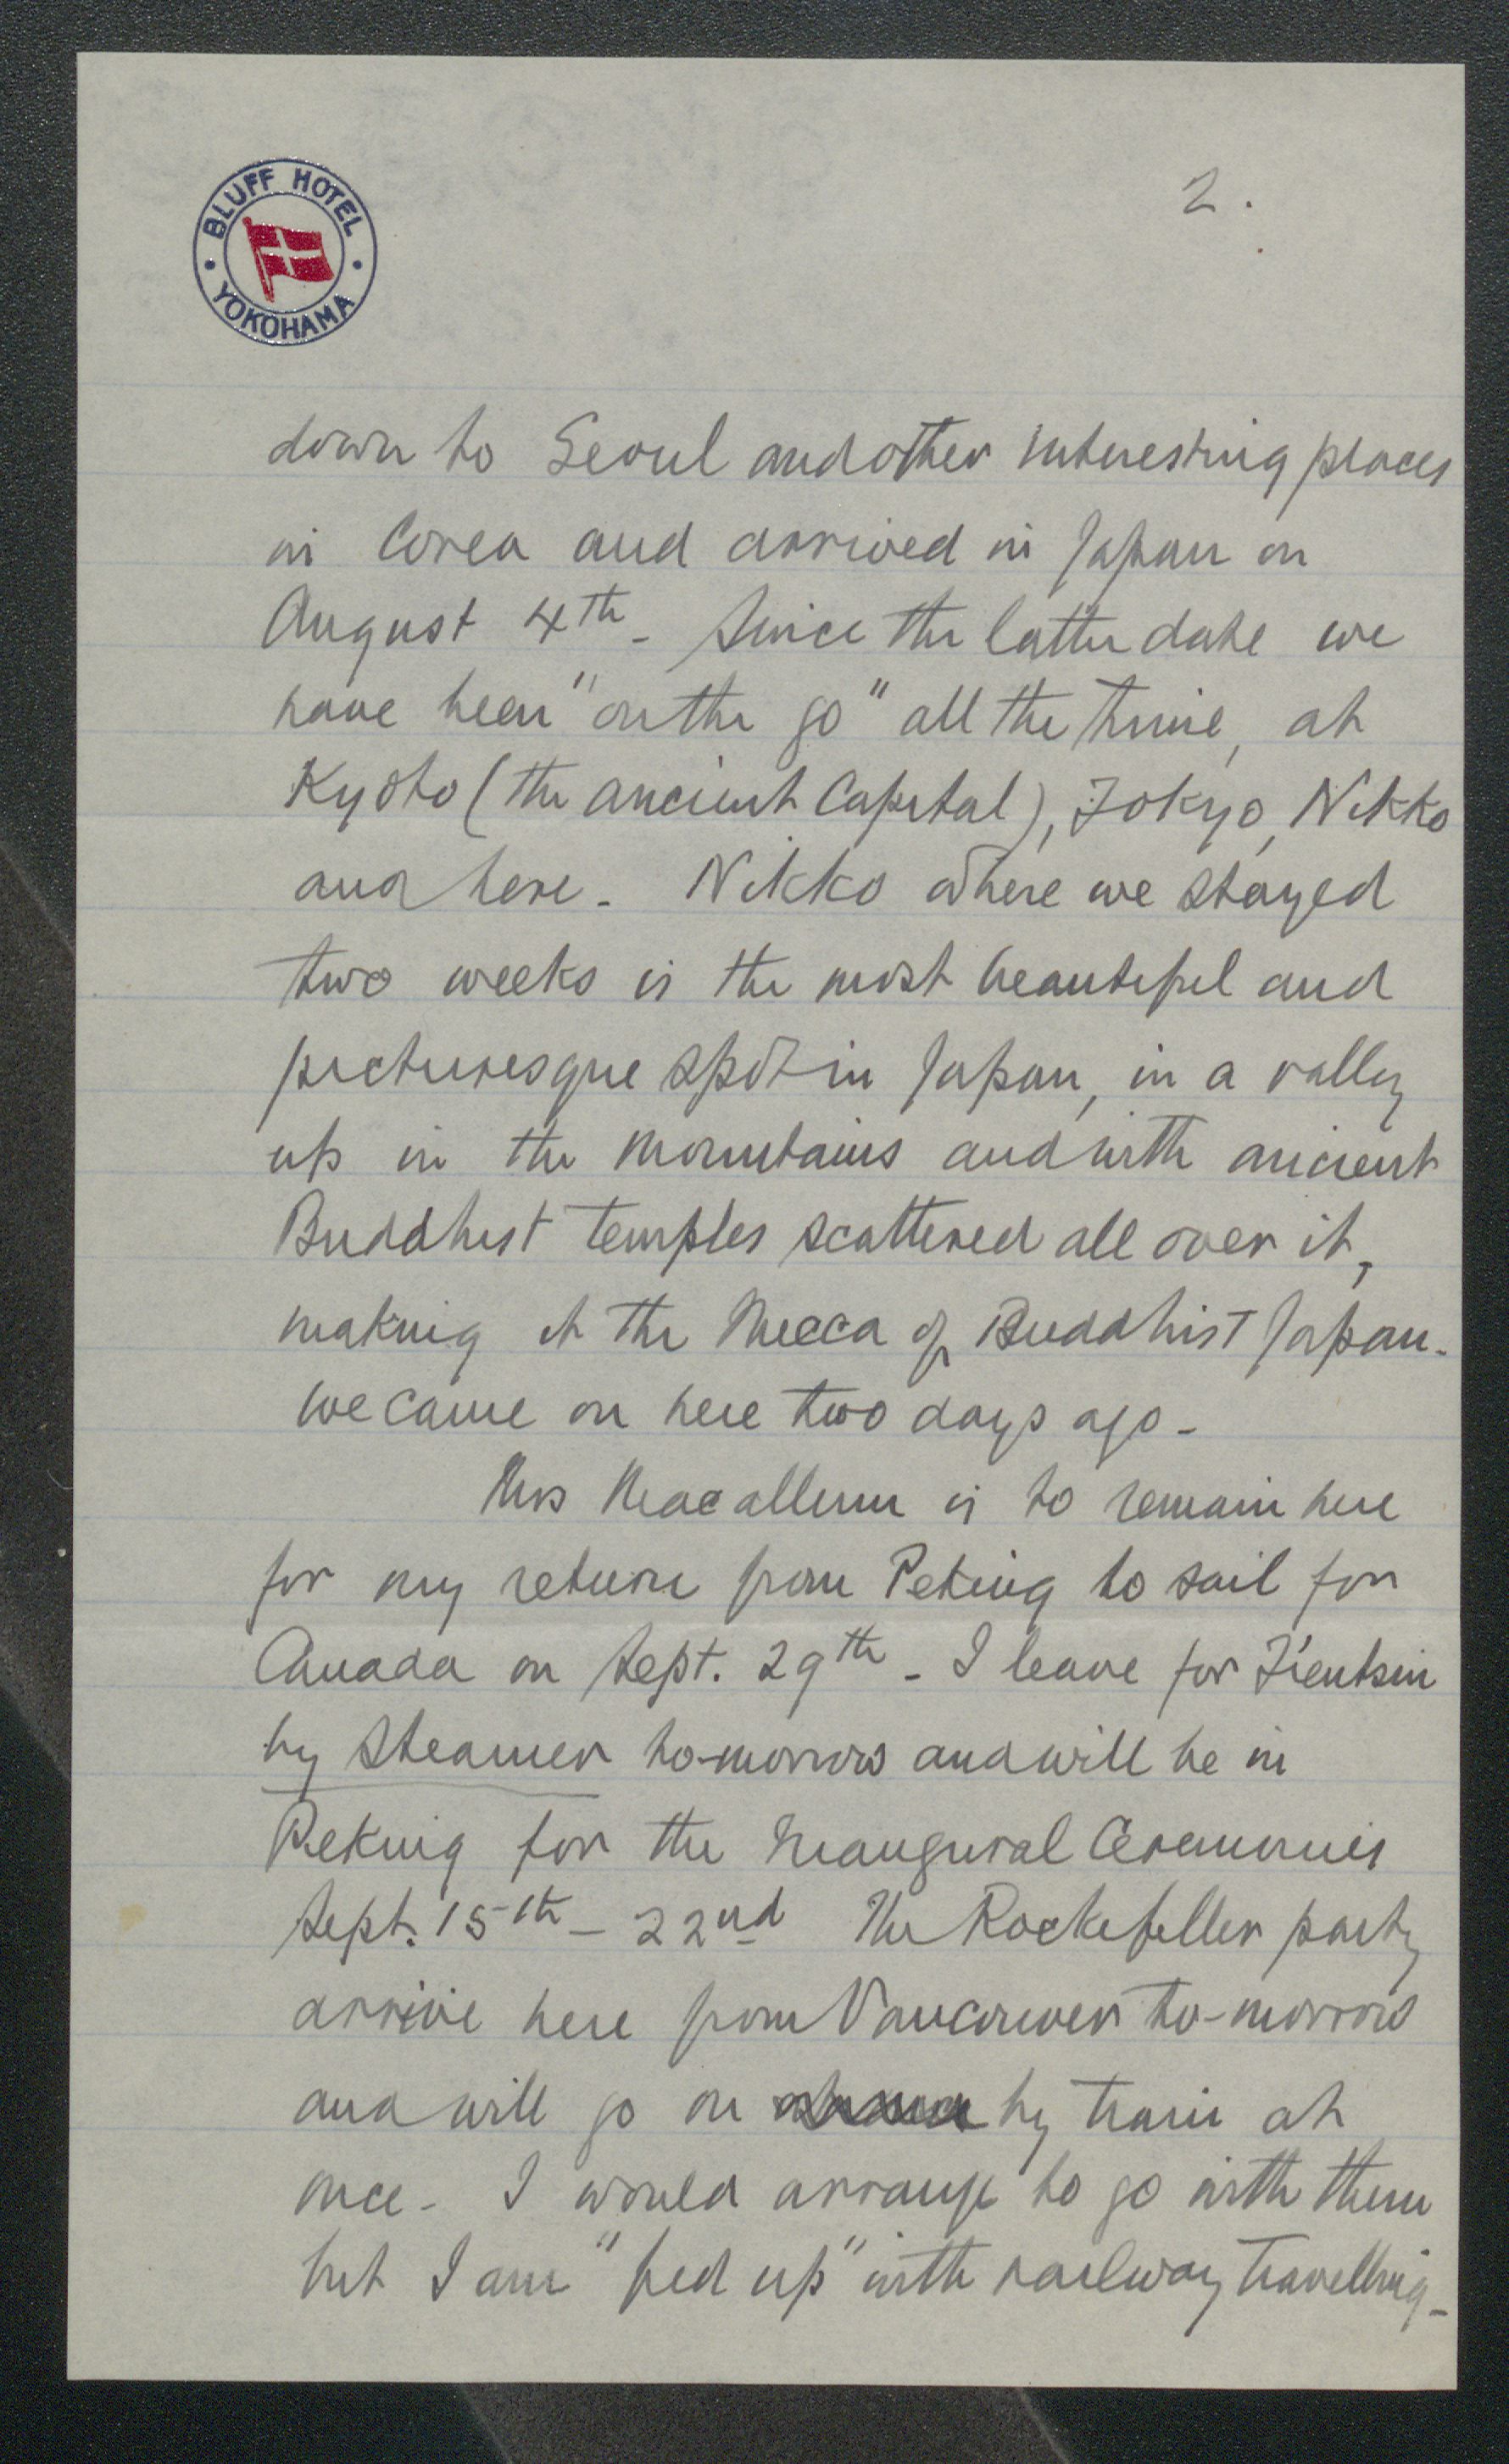 BLUFF HOTEL
YOKOHAMA
2.
down to Seoul and other interesting places
in Corea and arrived in Japan on
August 4th - Since the latter date we
have been "on the go" all the time, at
Kyoto (the ancient Capital), Tokyo, Nikko
and here - Nikko where we stayed
two weeks is the most beautiful and
picturesque spot in Japan, in a valley
up in the mountains and with ancient
Buddhist temples scattered all over it,
making it the Mecca of Buddhist Japan -
We came on here two days ago -
Mrs Macallum is to remain here
for my return from Peking to sail for
Canada on Sept. 29th - I leave for Tientsin
by steamer to-morrow and will be in
Peking for the Inaugural Ceremonies
Sept. 15th - 22nd The Rockefeller party
arrive here from Vancouver to-morrow
and will go on by train at
once - I would arrange to go with them
but I am "fed up" with railway travelling -